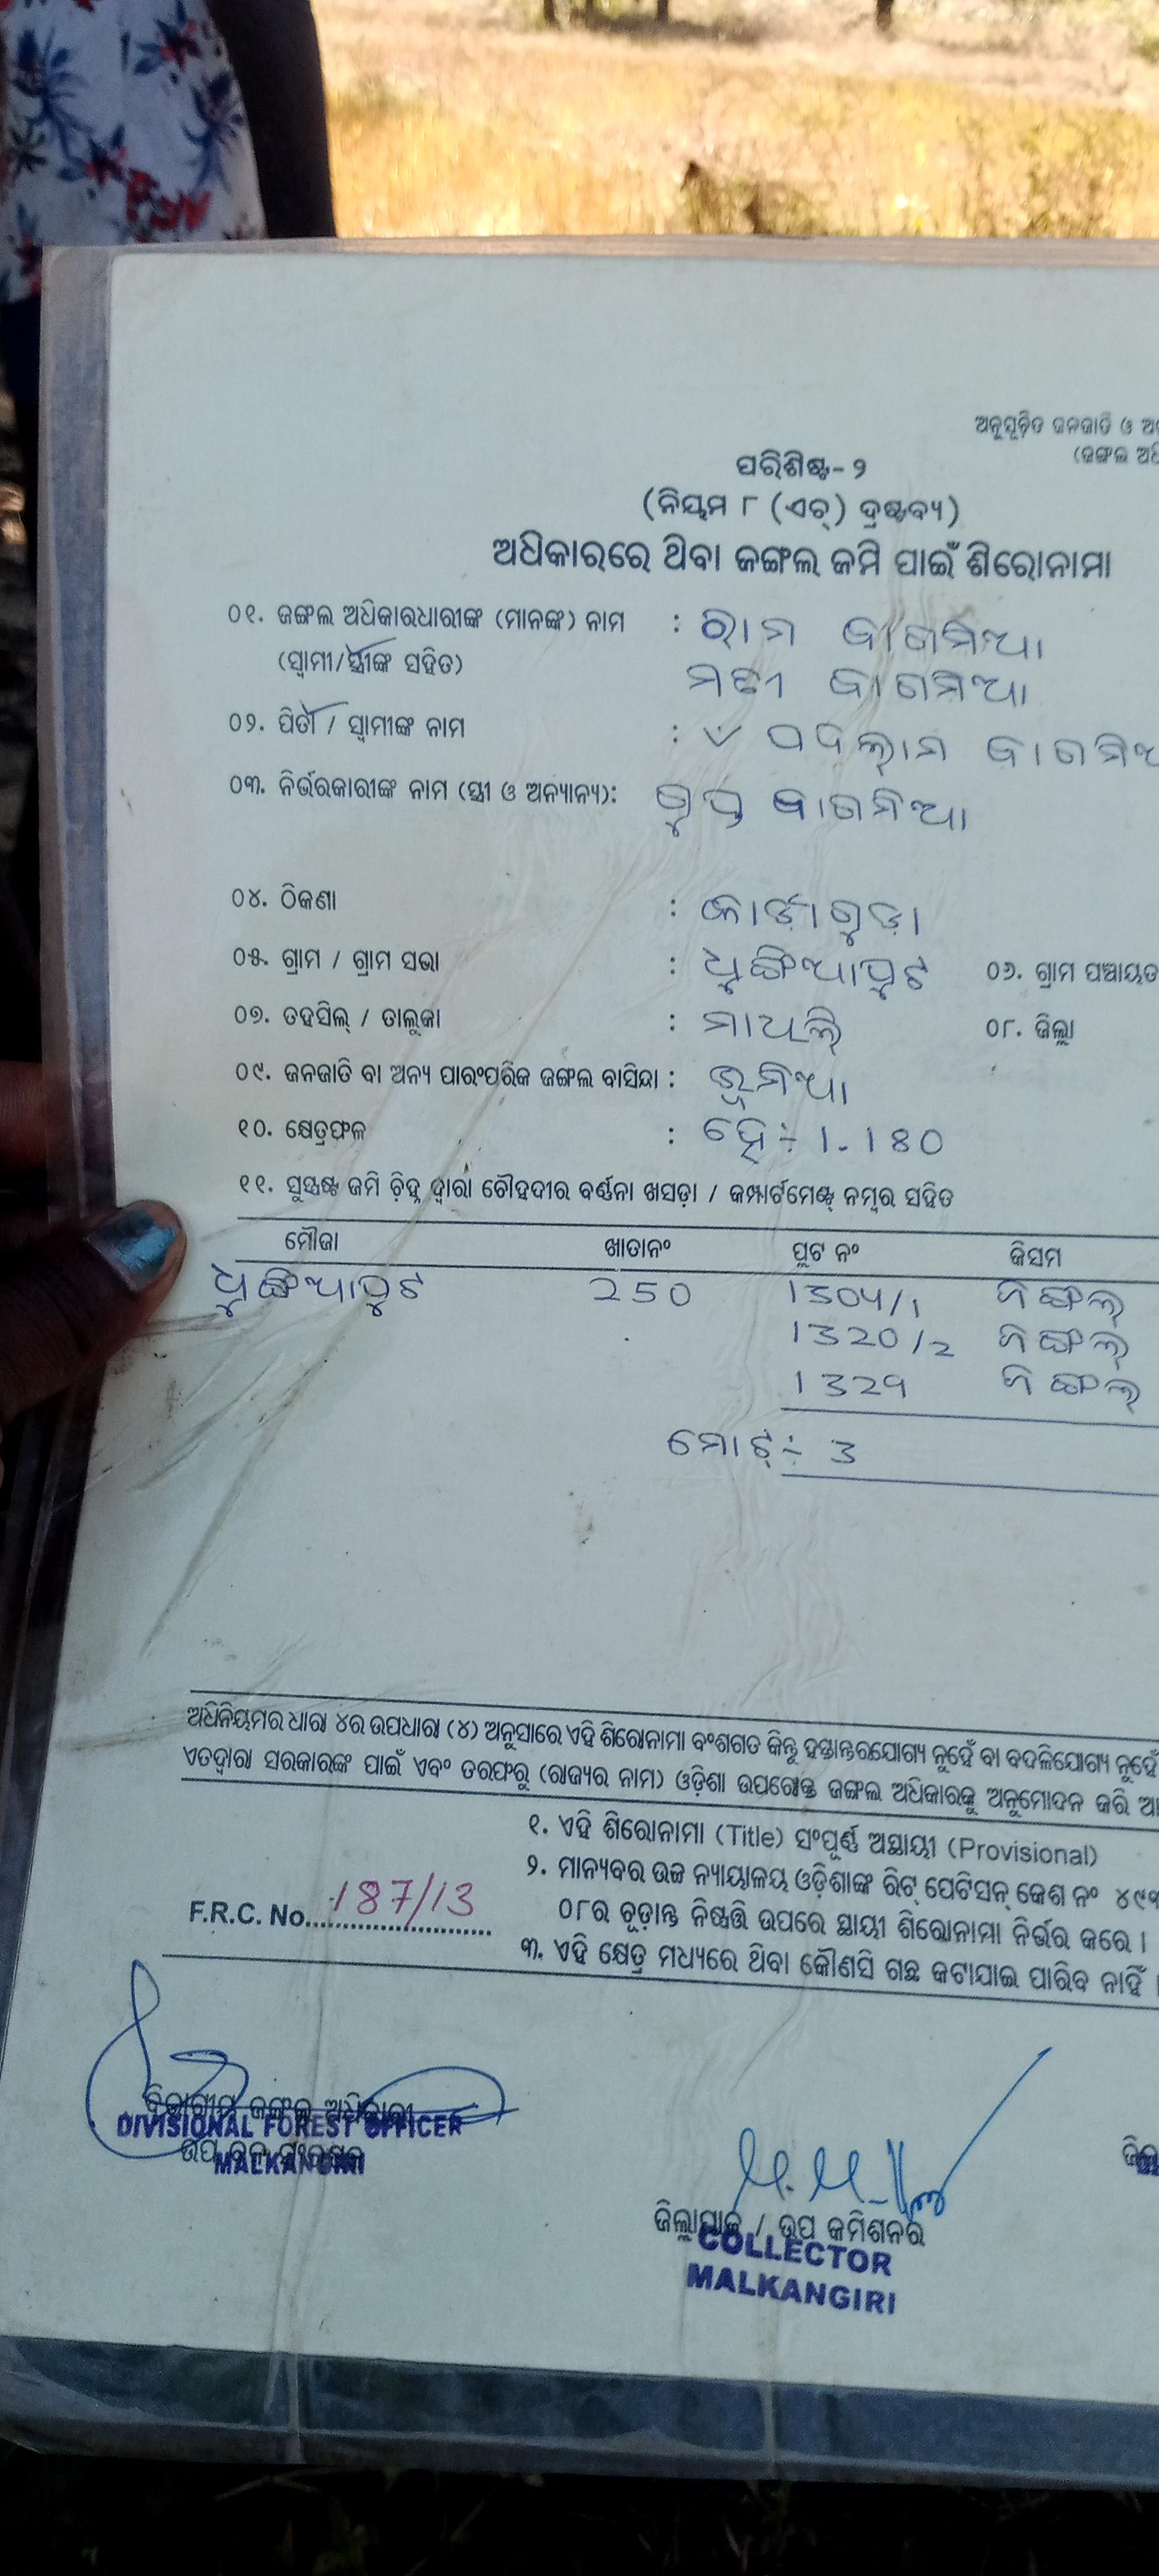 ଅନୁସୂଚିତ ଜନଜାତି ଓ
(ଜଙ୍ଗଲ
ପରିଶିଷ୍ଟ- ୨
(ନିୟମ ୮ (ଏଚ୍) ଦ୍ରଷ୍ଟବ୍ୟ)
ଅଧିକାରରେ ଥିବା ଜଙ୍ଗଲ ଜମି ପାଇଁ ଶିରୋନାମା
୦୧. ଜଙ୍ଗଲ ଅଧିକାରଧାରୀଙ୍କ (ମାନଙ୍କ) ନାମ : ରାମ ବାଗମିଆ
(ସ୍ୱାମୀ/ସ୍ତ୍ରୀଙ୍କ ସହିତ) ବାଗମିଆ
୦୨. ପିତା / ସ୍ୱାମୀଙ୍କ ନାମ :
୦୩. ନିର୍ଭରକାରୀଙ୍କ ନାମ (ସ୍ତ୍ରୀ ଓ ଅନ୍ୟାନ୍ୟ): ବାଗମିଆ
୦୪. ଠିକଣା :
୦୫. ଗ୍ରାମ / ଗ୍ରାମ ସଭା : ଧୁଙ୍ଗିଆପୁଟ ୦୬. ଗ୍ରାମ ପଞ୍ଚାୟତ
୦୭. ତହସିଲ୍ / ତାଲୁକା : ମାଥିଲି ୦୮. ଜିଲ୍ଲା
୦୯. ଜନଜାତି ବା ଅନ୍ୟ ପାରଂପରିକ ଜଙ୍ଗଲ ବାସିନ୍ଦା : ଭୂମିଆ
୧୦. କ୍ଷେତ୍ରଫଳ : ହେ÷ 1.180
୧୧. ସୁସ୍ପଷ୍ଟ ଜମି ଚିହ୍ନ ଦ୍ୱାରା ଚୌହଦୀର ବର୍ଣ୍ଣନା ଖସଡ଼ା / କମ୍ପାର୍ଟମେଣ୍ଟ ନମ୍ବର ସହିତ
ମୌଜା ଖାତାନଂ ପ୍ଲଟ ନଂ କିସମ
ଧୁଙ୍ଗିଆପୁଟ 250 1304/1 ଜଙ୍ଗଲ
1320/2 ଜଙ୍ଗଲ
1329 ଜଙ୍ଗଲ
ମୋଟ୍÷ 3
ଅଧିନିୟମର ଧାରା ୪ର ଉପଧାରା (୪) ଅନୁସାରେ ଏହି ଶିରୋନାମା ବଂଶଗତ କିନ୍ତୁ ହସ୍ତାନ୍ତରଯୋଗ୍ୟ ନୁହେଁ ବା ବଦଳିଯୋଗ୍ୟ ନୁହେଁ
ଏତଦ୍ୱାରା ସରକାରଙ୍କ ପାଇଁ ଏବଂ ତରଫରୁ (ରାଜ୍ୟର ନାମ) ଓଡ଼ିଶା ଉପରୋକ୍ତ ଜଙ୍ଗଲ ଅଧିକାରକୁ ଅନୁମୋଦନ କରି
୧. ଏହି ଶିରୋନାମା (Title) ସଂପୂର୍ଣ୍ଣ ଅସ୍ଥାୟୀ (Provisional)
୨. ମାନ୍ୟବର ଉଚ୍ଚ ନ୍ୟାୟାଳୟ ଓଡ଼ିଶାଙ୍କ ରିଟ୍ ପେଟିସନ୍ କେଶ ନଂ
F.R.C. No. 187/13 ୦୮ର ଚୂଡ଼ାନ୍ତ ନିଷ୍ପତ୍ତି ଉପରେ ସ୍ଥାୟୀ ଶିରୋନାମା ନିର୍ଭର କରେ ।
୩. ଏହି କ୍ଷେତ୍ର ମଧ୍ୟରେ ଥିବା କୌଣସି ଗଛ କଟାଯାଇ ପାରିବ ନାହିଁ ।
ବିଭାଗୀୟ ଜଙ୍ଗଲ ଅଧିକାରୀ
DIVISIONAL FOREST OFFICER
MALKANGIRI
ଜିଲ୍ଲାପାଳ / ଉପ କମିଶନର
COLLECTOR
MALKANGIRI